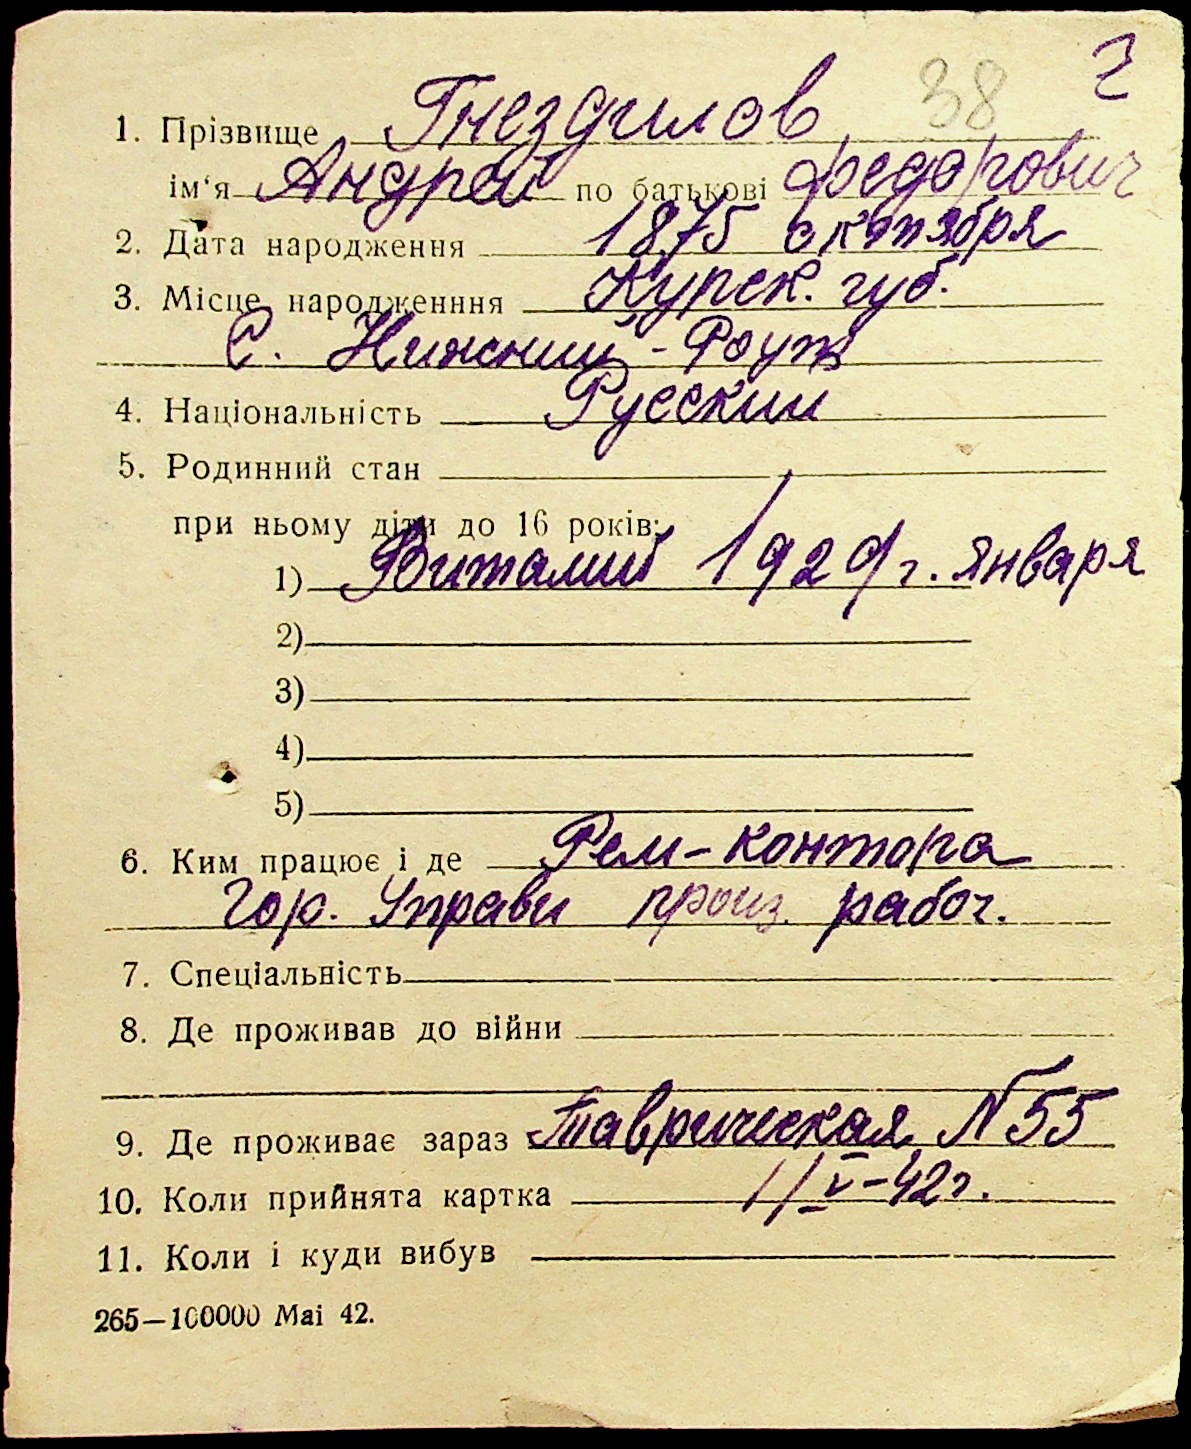 38 г
1. Прізвище Гнездилов
ім‘я Андрей по батькові Федорович
2. Дата народження 1875 октября
3. Місце народженння Курск. губ.
С. Нижний-Роуж
4. Національність Русский
5. Родинний стан
при ньому діти до 16 років:
1) Виталий 1929 г. января
2)
3)
4)
5)
6. Ким працює і де Рем-контора
Гор. Управы произ. работ.
7. Спеціальність
8. Де проживав до війни
9. Де проживає зараз Таврическая N 55
10. Коли прийнята картка 1/V-42 г.
11. Коли і куди вибув
265—100000 Mai 42.